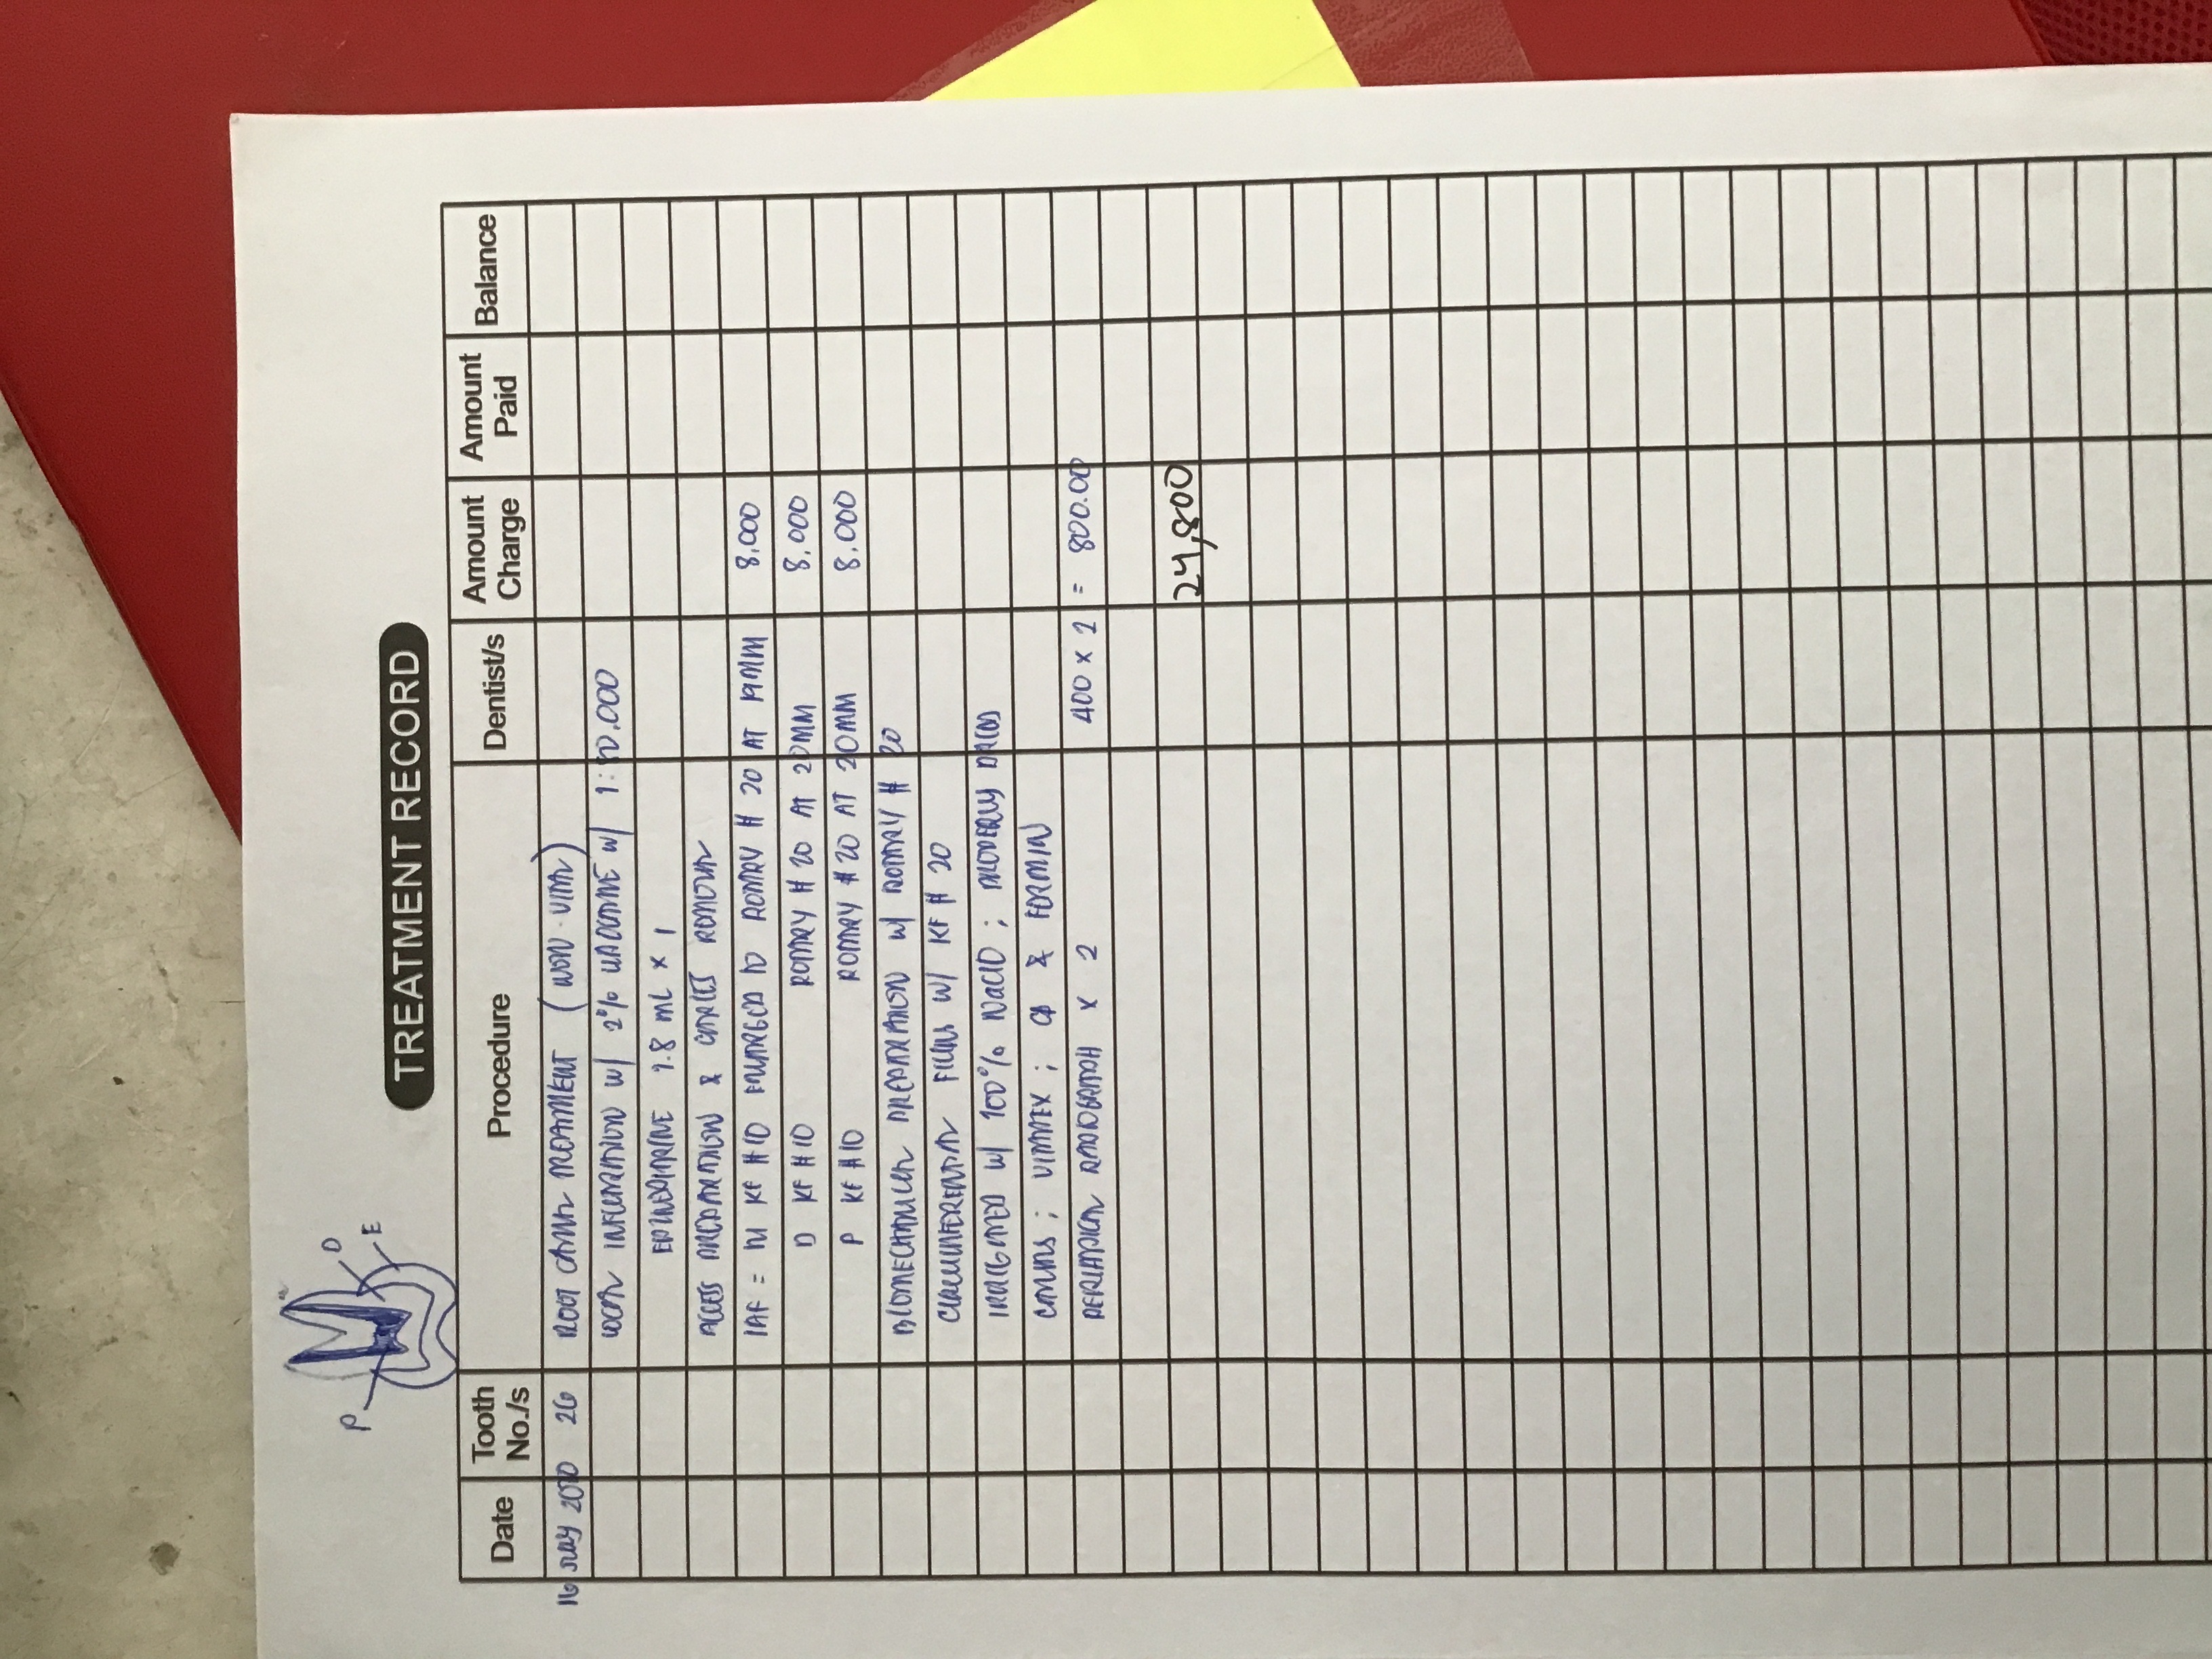 P
D
E
TREATMENT RECORD
Date Tooth No./s Procedure Dentist/s Amount Charge Amount Paid Balance
16 May 26 ROOT CANAL TREATMENT (NON-VITAL)
LOCAL INFILTRATION W/ 2% LIDOCAINE W/ 1:50,000
EPINEPHRINE 1.8 mL x 1
ACCESS PREPARATION & CARIES REMOVAL
IAF = M KF #10 ENLARGED TO ROTARY # 20 AT 19MM 8,000
D KF #10 ROTARY # 20 AT 20MM 8,000
P KF #10 ROTARY # 20 AT 20MM 8,000
BIOMECHANICAL PREPARATION W/ ROTARY # 20
CIRCUMFERENTIAL FILING W/ KF # 20
IRRIGATED W/ 100% NaClO ;
CANALS ; VITAPEX ; & FERMIN
PERIAPICAL RADIOGRAPH x 2 400 x 2 = 800.00
24,800